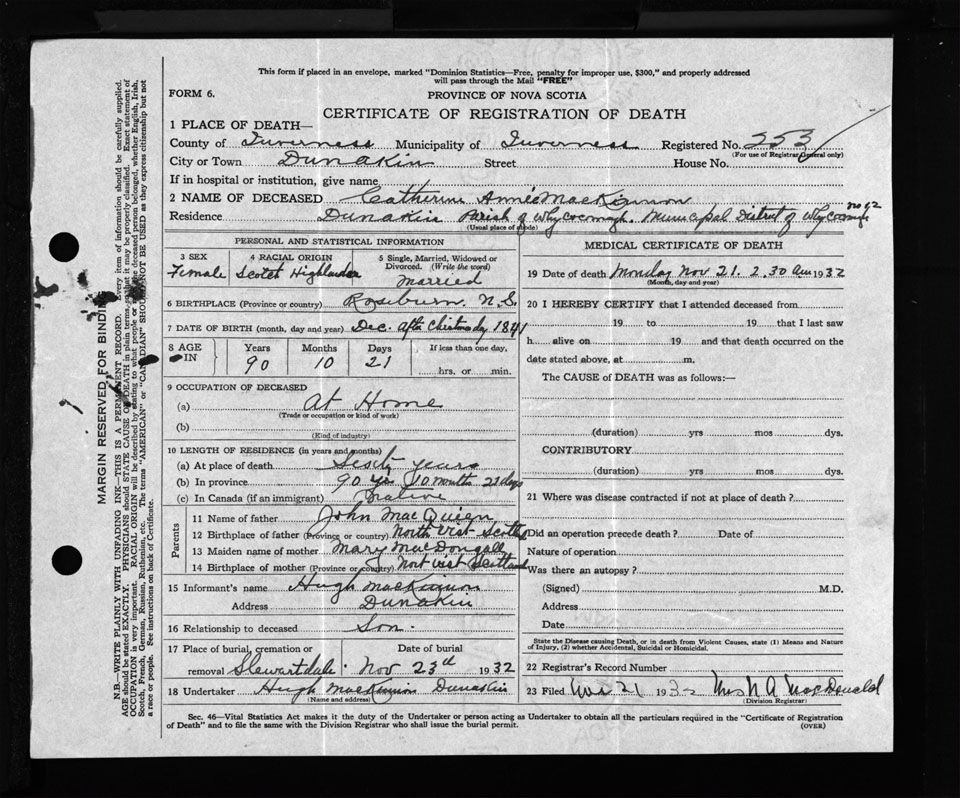 This form if placed in an envelope, marked "Dominion Statistics—Free, penalty for improper use, $300," and properly addressed
will pass through the Mail "FREE"
FORM 6. PROVINCE OF NOVA SCOTIA
CERTIFICATE OF REGISTRATION OF DEATH
1 PLACE OF DEATH—
County of Inverness Municipality of Inverness Registered No. 353
(For use of Registrar General only)
City or Town Dunakin Street House No.
If in hospital or institution, give name
2 NAME OF DECEASED Catherine Annie MacKinnon
Residence Dunakin Parish of Whycocomagh. Municipal District of Whycocomagh no 12
(Usual place of abode)
PERSONAL AND STATISTICAL INFORMATION
3 SEX 4 RACIAL ORIGIN 5 Single, Married, Widowed or
Divorced. (Write the word)
Female Scotch Highlander Married
6 BIRTHPLACE (Province or country) Roseburn N.S.
7 DATE OF BIRTH (month, day and year) Dec. after Christmas day 1841
8 AGE IN Years Months Days If less than one day,
90 10 21 hrs. or min.
9 OCCUPATION OF DECEASED
(a) At Home
(Trade or occupation or kind of work)
(b)
(Kind of industry)
10 LENGTH OF RESIDENCE (in years and months)
(a) At place of death Sixty years
(b) In province 90 yrs 10 months 21 days
(c) In Canada (if an immigrant) Native
Parents
11 Name of father John MacQuien
12 Birthplace of father (Province or country) North Uist Scotland
13 Maiden name of mother Mary MacDougall
14 Birthplace of mother (Province or country) Nort Uist Scotland
15 Informant's name Hugh MacKinnon
Address Dunakin
16 Relationship to deceased Son.
17 Place of burial, cremation or Date of burial
removal Stewartdale. Nov 23rd 1932
18 Undertaker Hugh MacKinnon Dunakin
(Name and address)
MEDICAL CERTIFICATE OF DEATH
19 Date of death Monday Nov 21. 2.30 am 1932
(Month, day and year)
20 I HEREBY CERTIFY that I attended deceased from
19 to 19 that I last saw
h alive on 19 and that death occurred on the
date stated above, at m.
The CAUSE of DEATH was as follows:—
(duration) yrs mos dys.
CONTRIBUTORY
(duration) yrs mos dys.
21 Where was disease contracted if not at place of death?
Did an operation precede death? Date of
Nature of operation
Was there an autopsy?
(Signed) M.D.
Address
Date
State the Disease causing Death, or in death from Violent Causes, state (1) Means and Nature
of Injury, (2) whether Accidental, Suicidal or Homicidal.
22 Registrar's Record Number
23 Filed Nov 21 1932 Mrs N A MacDonald
(Division Registrar)
Sec. 46—Vital Statistics Act makes it the duty of the Undertaker or person acting as Undertaker to obtain all the particulars required in the "Certificate of Registration
of Death" and to file the same with the Division Registrar who shall issue the burial permit. (OVER)
MARGIN RESERVED FOR BINDING
N.B.—WRITE PLAINLY WITH UNFADING INK—THIS IS A PERMANENT RECORD. Every item of information should be carefully supplied.
AGE should be stated EXACTLY. PHYSICIANS should STATE CAUSE OF DEATH in plain terms, that it may be properly classified. Exact statement of
OCCUPATION is very important. RACIAL ORIGIN will be described by stating to what people or the deceased person belonged, whether English, Irish,
Scotch, French, German, Russian, Ruthenian, etc. The terms "AMERICAN" or "CANADIAN" SHOULD NOT BE USED as they express citizenship but not
a race or people. See instructions on back of Certificate.